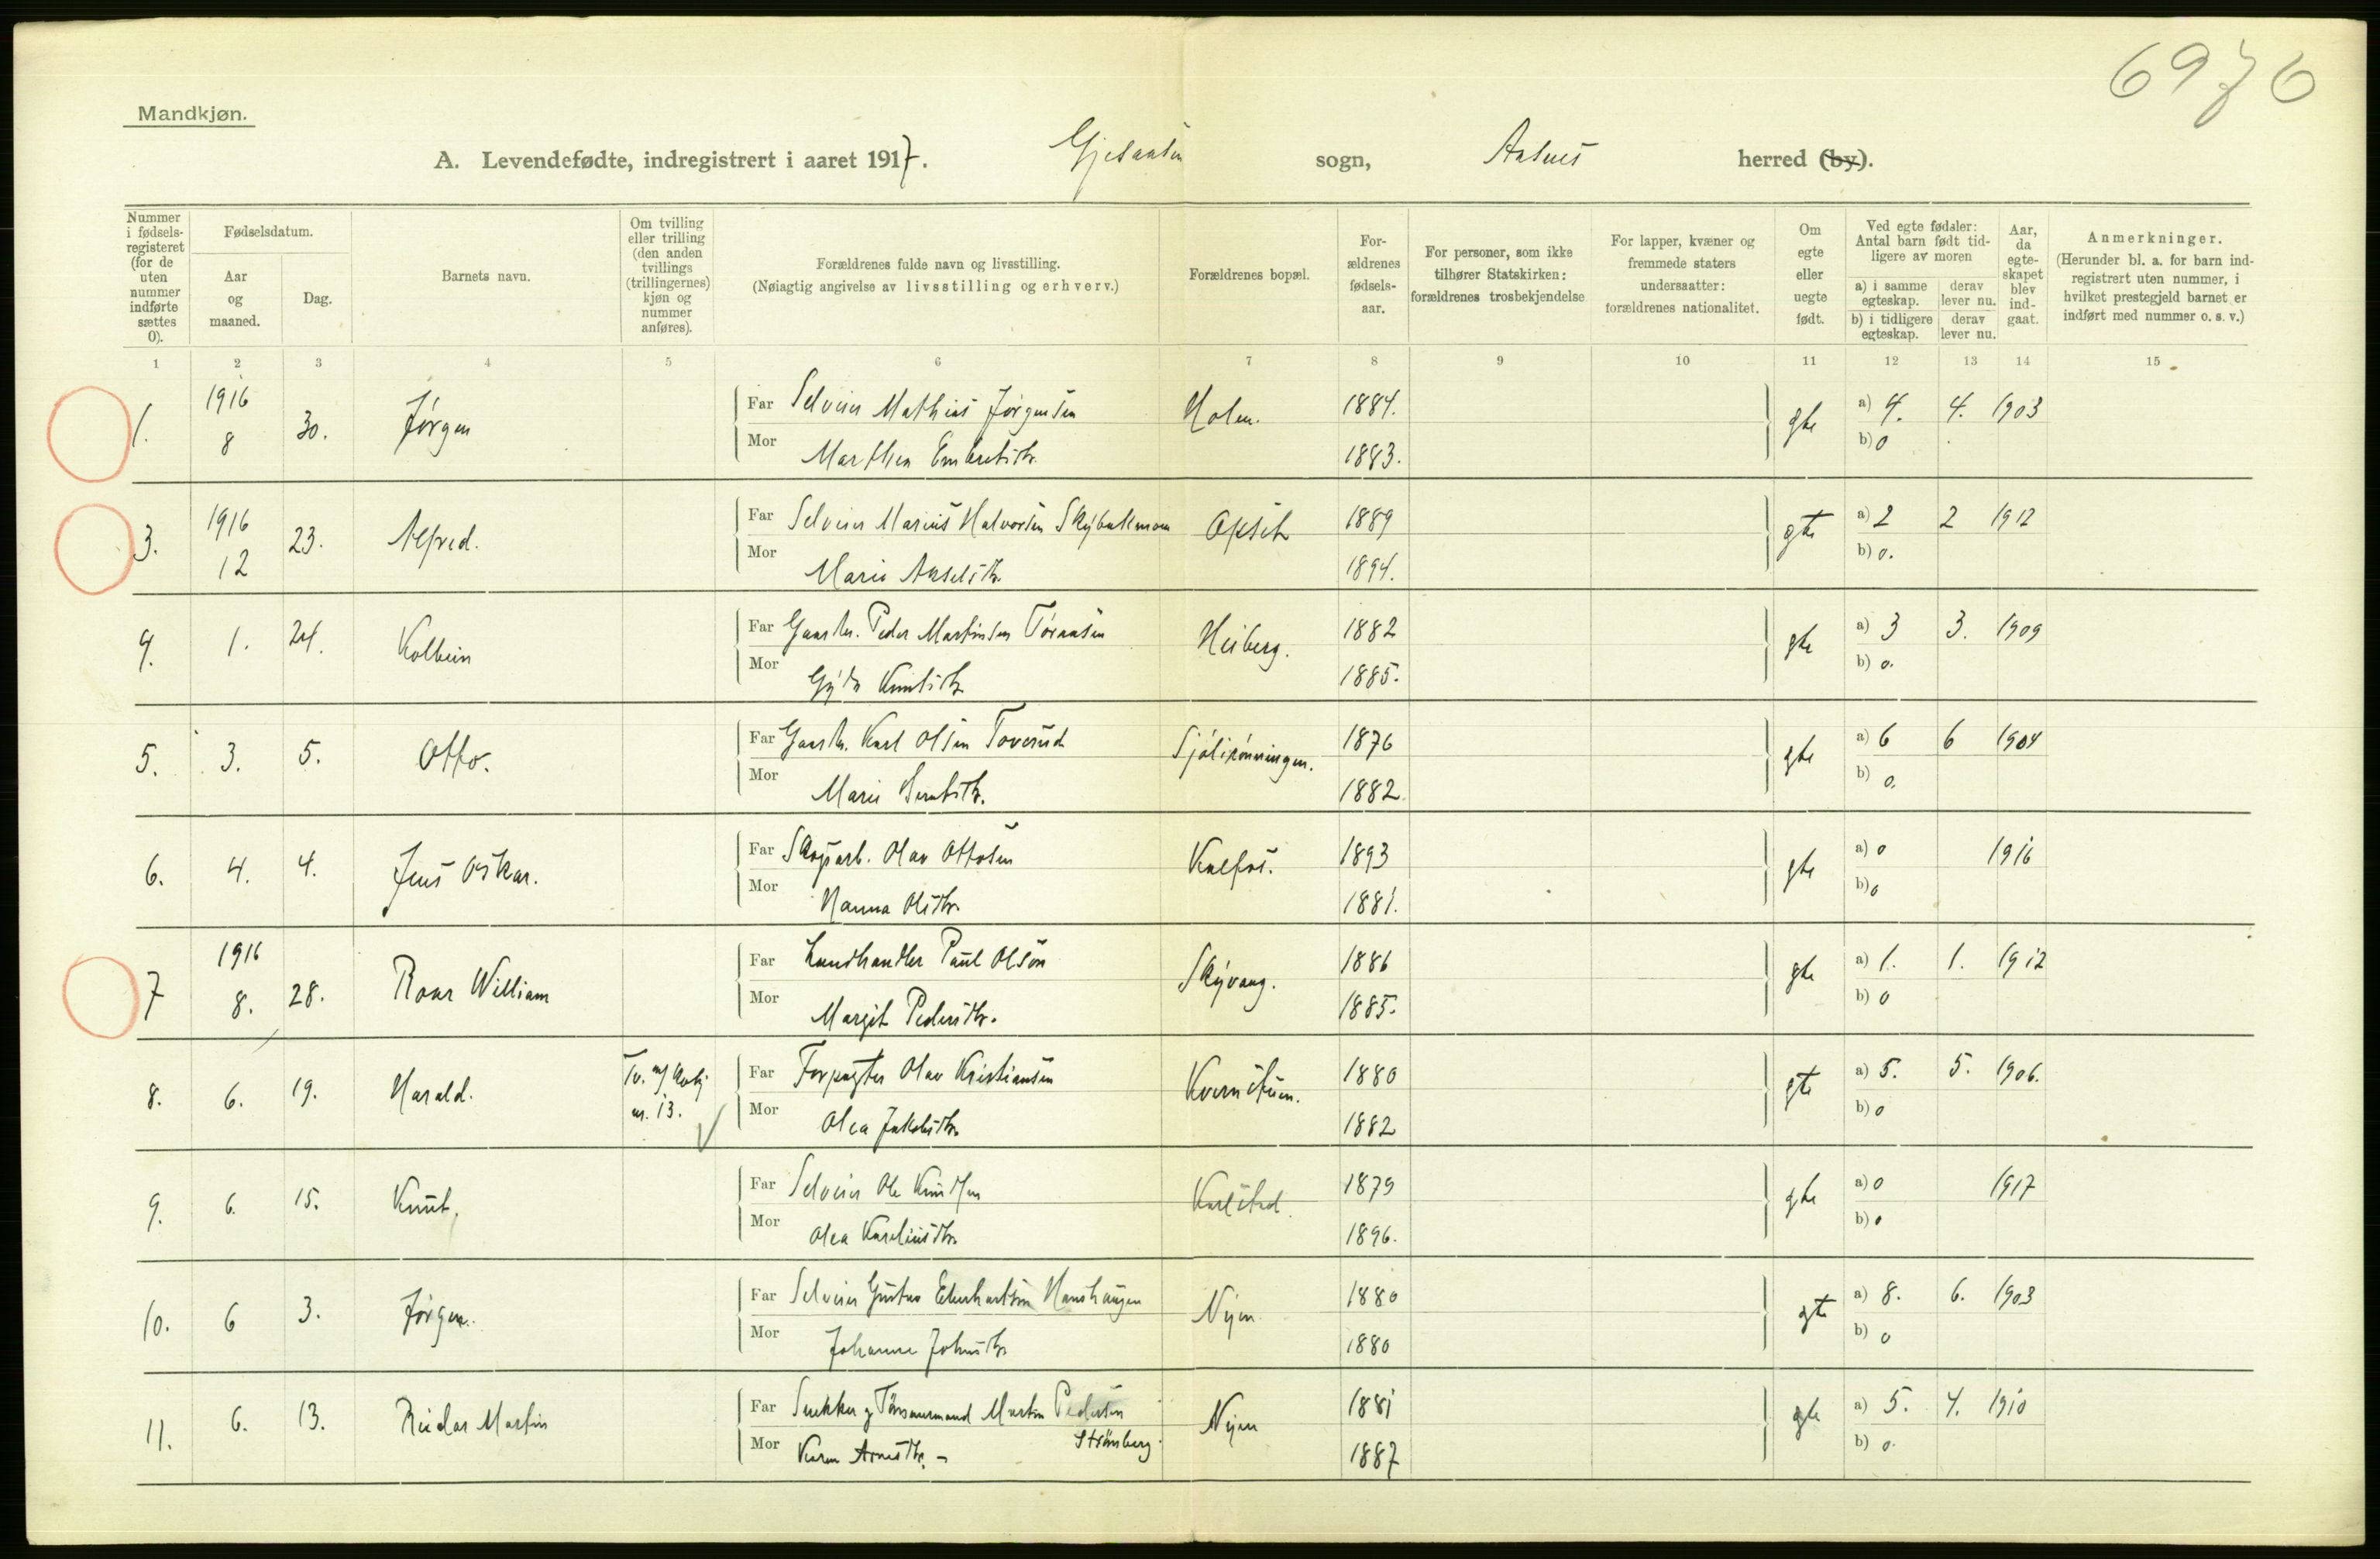 6976
Mandkjøn.
A. Levendefødte, indregistrert i aaret 1917. Gjesaasen sogn, Aasnes herred (by).
Nummer i fødsels-registeret (for de uten nummer indførte sættes 0).
Fødselsdatum.
Aar og maaned.
Dag.
Barnets navn.
Om tvilling eller trilling (den anden tvillings (trillingernes) kjøn og nummer anføres).
Forældrenes fulde navn og livsstilling.
(Nøiagtig angivelse av livsstilling og erhverv.)
Forældrenes bopæl.
For-ældrenes fødsels-aar.
For personer, som ikke tilhører Statskirken: forældrenes trosbekjendelse
For lapper, kvæner og fremmede staters undersaatter: forældrenes nationalitet.
Om egte eller uegte født.
Ved egte fødsler: Antal barn født tid-ligere av moren
a) i samme egteskap.
derav lever nu.
b) i tidligere egteskap.
derav lever nu.
Aar, da egte-skapet blev ind-gaat.
Anmerkninger.
(Herunder bl. a. for barn ind-registrert uten nummer, i hvilket prestegjeld barnet er indført med nummer o. s. v.)
1 2 3 4 5 6 7 8 9 10 11 12 13 14 15
1. 1916 8 30. Jørgen Far Selveier Mathias Jørgensen Holen. 1884. gte a) 4. 4. 1903
Mor Marthea Embretsdtr. 1883. b) 0
3. 1916 12 23. Alfred. Far Selveier Marius Halvorsen Skybakmoen Opset 1889 gte a) 2 2 1912
Mor Marie Akselsdtr. 1894. b) 0.
4. 1. 24. Kolbein Far Gaardbr. Peder Martinsen Töraasen Heiberg. 1882 gte a) 3 3. 1909
Mor Gyda Knutsdtr. 1885. b) 0.
5. 3. 5. Otto. Far Gaardbr. Karl Olsen Toverud Sjölirönningen. 1876 gte a) 6 6 1904
Mor Marie Berntsdtr. 1882. b) 0.
6. 4. 4. Jens Oskar. Far Skogsarb. Olav Ottosen Kalfos. 1893 gte a) 0 1916
Mor Hanna Olsdtr. 1881. b) 0
7 1916 8. 28. Roar William Far Landhandler Paul Olson Skyvang. 1886 gte a) 1. 1. 1912
Mor Margit Pedersdtr. 1885. b) 0
8. 6. 19. Harald. Tv. m/ kvkj nr. 13. Far Forpagter Olav Kristiansen Kvernstuen. 1880 gte a) 5. 5. 1906.
Mor Olea Jakobsdtr. 1882 b) 0
9. 6. 15. Knut. Far Selveier Ole Knudsen Karlstad. 1879 gte a) 0 1917
Mor Olea Kareliusdtr. 1896. b) 0
10. 6 3. Jörgen. Far Selveier Gustav Eberhartsen Hanshaugen Nyen 1880 gte a) 8. 6. 1903
Mor Johanne Johnsdtr. 1880 b) 0
11. 6. 13. Reidar Martin Far Snekker og Tömmermand Martin Pedersen Strömberg. Nyen 1881 gte a) 5. 4. 1910
Mor Karen Arnesdtr. – 1887 b) 0.